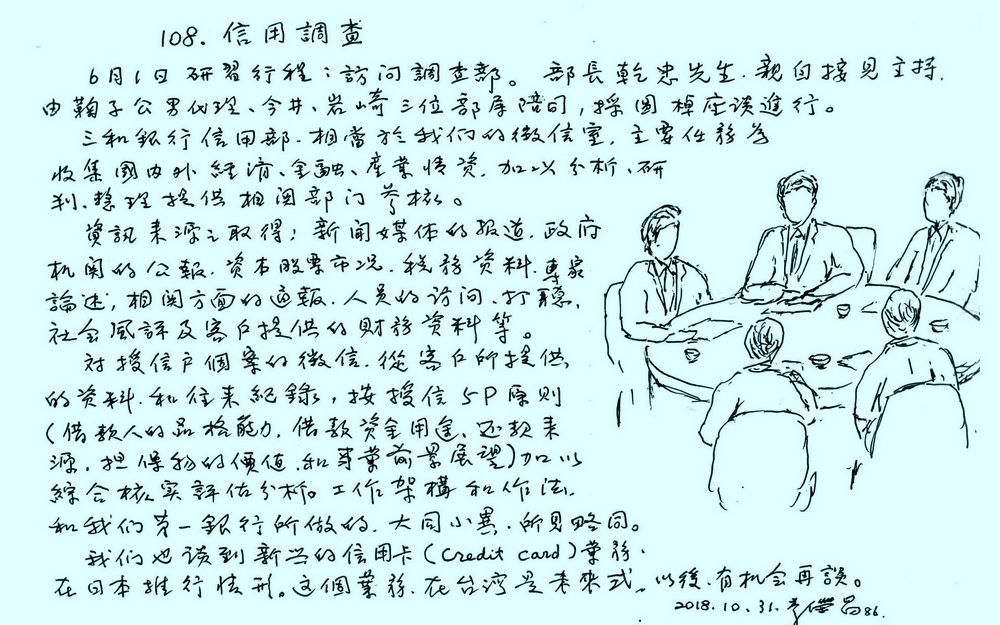 108. 信用調查
6月1日研習行程：訪问調查部。部長乾忠先生.親自接見主持.
由鞠子公男代理、今井、岩崎三位部屬陪同，採圓棹座谈進行。
三和銀行信用部.相當於我们的徵信室.主要任務為
收集國内外經济、金融、產業情資.加以分析、研
判、整理提供相関部门参核。
資訊来源之取得：新闻媒体的报道.政府
机関的公報.資本股票市况.税務資料.專家
論述，相関方面的通報.人员的访问、打聽、
社会風評及客户提供的財務資料等。
对授信户個案的徵信.從客户所提供
的資料.和往来紀錄，按授信5P原則
(借款人的品格能力.借款資金用途、还款来
源.担保物的價值.和事業前景展望)加以
綜合核实評估分析。工作架構和作法.
和我们第一銀行所做的.大同小異.所見略同。
我们也谈到新兴的信用卡(Credit card)業務.
在日本推行情形。這個業務.在台湾是未來式。以後.有机会再談。
2018.10.31. 86.